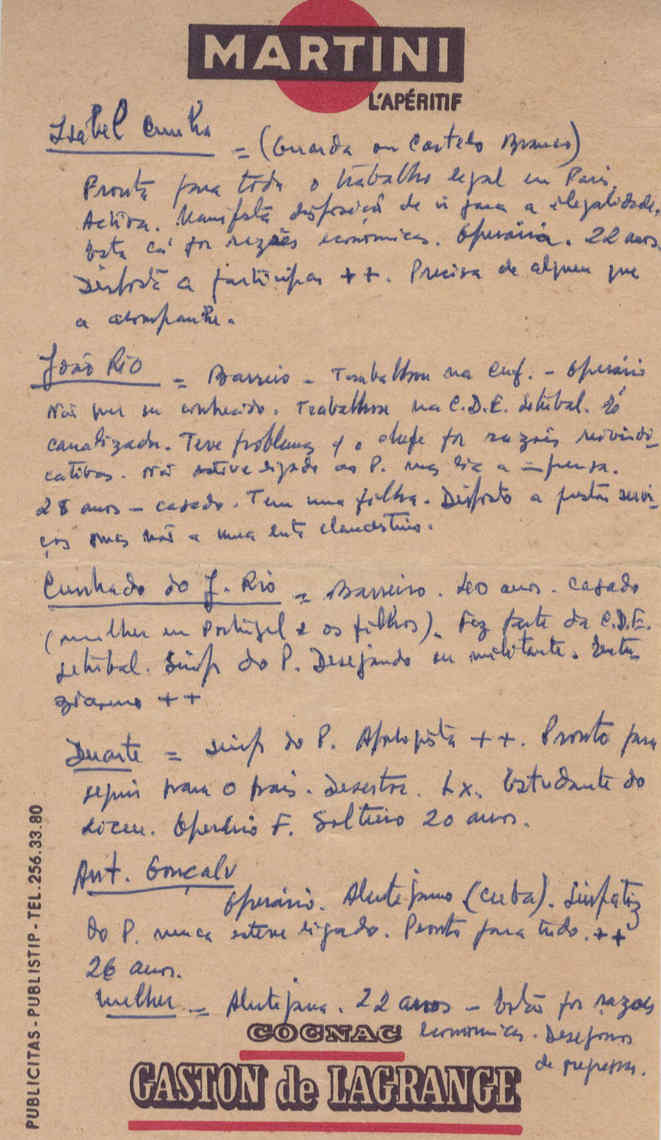 MARTINI
L'APÉRITIF
Isabel Cunha = (Guarda ou Castelo Branco)
Pronta para todo o trabalho legal em Paris.
Activa. Manifesta disposição de ir para a ilegalidade.
Está cá por razões economicas. Operária. 22 anos.
Disposta a participar ++. Precisa de alguem que
a acompanhe.
João Rio = Barreiro - Trabalhou na Cuf. - Operário
Não quer ser conhecido. Trabalhou na C.D.E. Setubal. É
canalizador. Teve problemas c/ o chefe por razões reivindi-
cativas. Não esteve ligado ao P. mas lia a imprensa.
28 anos - casado. Tem uma filha. Disposto a prestar servi-
ços mas não a clandestino.
Cunhado do J. Rio = Barreiro. 40 anos. casado
(mulher em Portugal e os filhos). Fez parte da C.D.E.
Setubal. Simp do P. Desejando ser militante. Entu-
siasmo ++
Duarte = simp do P. ++. Pronto para
seguir para o pais. Desertor. Lx. Estudante do
Liceu. Operário F. Solteiro 20 anos.
Ant. Gonçalv
Operário. Alentejano (Cuba). Simpatiz
do P. nunca esteve ligado. Pronto para tudo. ++
26 anos.
Mulher = Alentejana. 22 anos - Estão por razoes
economicas. Desejosos
de regressar.
COGNAC
GASTON de LAGRANGE
PUBLICITAS - PUBLISTIP - TEL. 256.33.80